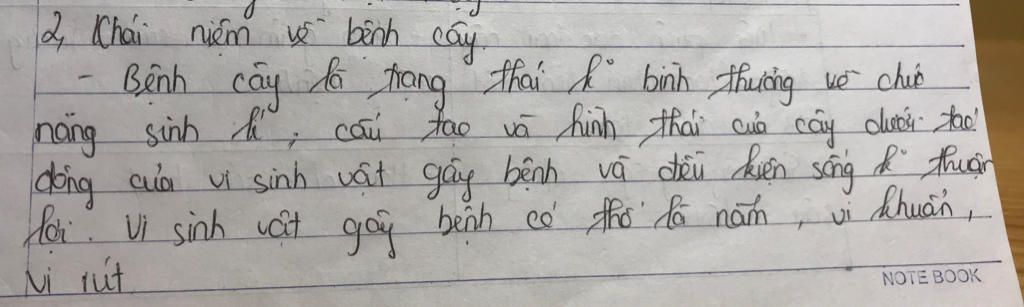 2, Khái niệm về bệnh cây.
- Bệnh cây là trạng thái k° bình thường về chức
năng sinh lí, cấu tạo và hình thái của cây dưới tác
động của vi sinh vật gây bệnh và điều kiện sống k° thuận
lợi. Vi sinh vật gây bệnh có thể là nấm, vi khuẩn,
vi rút
NOTE BOOK